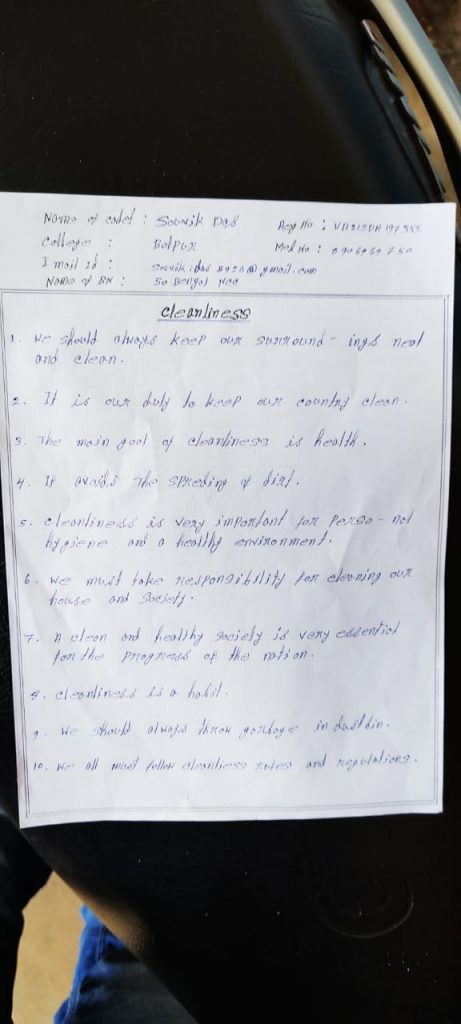 Name of cadet : Souvik Das
Reg No :
College : Bolpur
Mob No :
I mail Id :
Name of BN : 50 Bengal Ncc
Cleanliness
1. We should always keep our surround - ings neat
and clean.
2. It is our duty to keep our country clean.
3. The main goal of cleanliness is health.
4. It avoids the spreding of dirt.
5. Cleanliness is very important for perso - nal
hygiene and a healthy environment.
6. We must take responsibility for cleaning our
house and society.
7. A clean and healthy society is very essential
for the progress of the nation.
8. Cleanliness is a habit.
9. We should always throw garbage in dustbin.
10. We all must follow cleanliness rules and regulations.